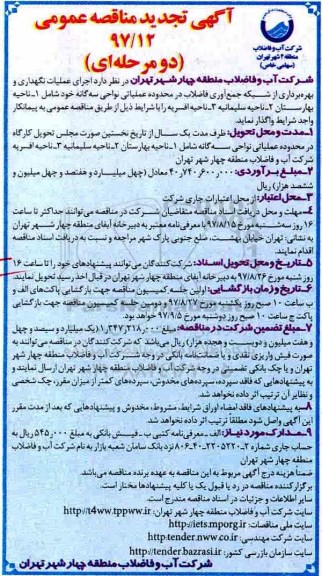 آگهی تجدید مناقصه عمومی
۹۷/۱۲
(دو مرحله‌ای)
شرکت آب و فاضلاب
منطقه ۴ شهر تهران
(سهامی خاص)
شرکت آب و فاضلاب منطقه چهار شهر تهران در نظر دارد اجرای عملیات نگهداری و
بهره‌برداری از شبکه جمع‌آوری فاضلاب در محدوده عملیاتی نواحی سه‌گانه خود شامل ۱-ناحیه
بهارستان ۲-ناحیه سلیمانیه ۳-ناحیه افسریه را با شرایط ذیل از طریق مناقصه عمومی به پیمانکار
واجد شرایط واگذار نماید.
۱-مدت و محل تحویل: ظرف مدت یک سال از تاریخ نخستین صورت مجلس تحویل کارگاه
در محدوده عملیاتی نواحی سه‌گانه شامل ۱-ناحیه بهارستان ۲-ناحیه سلیمانیه ۳-ناحیه افسریه
شرکت آب و فاضلاب منطقه چهار شهر تهران
۲-مبلغ برآوردی: ۴۰,۷۴۰,۶۰۰,۰۰۰ معادل (چهل میلیارد و هفتصد و چهل میلیون و
ششصد هزار) ریال
۳-محل اعتبار: از محل اعتبارات جاری شرکت
۴-مهلت و محل دریافت اسناد مناقصه: متقاضیان شرکت در مناقصه می‌توانند حداکثر تا ساعت
۱۶ روز سه‌شنبه مورخ ۹۷/۸/۱۵ با معرفی‌نامه معتبر به دبیرخانه آبفای منطقه چهار شهر تهران
به نشانی: تهران خیابان بهشت، ضلع جنوبی پارک شهر مراجعه و نسبت به دریافت اسناد مناقصه
اقدام نمایند.
۵-تاریخ و محل تحویل اسناد: شرکت‌کنندگان می‌توانند پیشنهادهای خود را تا ساعت ۱۶
روز شنبه مورخ ۹۷/۸/۲۶ به دبیرخانه آبفای منطقه چهار شهر تهران در قبال اخذ رسید تحویل نمایند.
۶-تاریخ و زمان بازگشایی: اولین جلسه کمیسیون مناقصه جهت بازگشایی پاکت‌های الف و
ب ساعت ۱۰ صبح روز یکشنبه مورخ ۹۷/۸/۲۷ و دومین جلسه کمیسیون مناقصه جهت بازگشایی
پاکت ج ساعت ۱۰ صبح روز دوشنبه مورخ ۹۷/۹/۵ خواهد بود.
۷-مبلغ تضمین شرکت در مناقصه: مبلغ ۱,۳۴۷,۲۱۸,۰۰۰ (یک میلیارد و سیصد و چهل
و هفت میلیون و دویست و هجده هزار) ریال می‌باشد که شرکت کنندگان در مناقصه می‌توانند به
صورت فیش واریزی نقدی و یا ضمانت‌نامه بانکی در وجه شرکت آب و فاضلاب منطقه چهار شهر
تهران و یا چک بانکی تضمینی در وجه شرکت آب و فاضلاب منطقه چهار شهر تهران ارسال نمایند و
به پیشنهادهایی که فاقد سپرده، سپرده‌های مخدوش، سپرده‌های کمتر از میزان مقرر، چک شخصی
و نظایر آن ترتیب اثر داده نخواهد شد.
۸-به پیشنهادهای فاقد امضاء اوراق شرایط، مشروط، مخدوش و پیشنهادهایی که بعد از مدت مقرر
این آگهی واصل شود مطلقا ترتیب اثر داده نخواهد شد.
۹-مدارک مورد نیاز: الف-معرفی‌نامه کتبی ب-فیش بانکی به مبلغ ۵۴۵,۰۰۰ ریال به
حساب جاری شماره نزد بانک سامان شعبه بازار به نام شرکت آب و فاضلاب
منطقه چهار شهر تهران
ضمناً هزینه درج آگهی مربوط به این مناقصه به عهده برنده مناقصه می‌باشد.
برگزارکننده مناقصه در رد یا قبول یک یا کلیه پیشنهادها مختار است.
سایر اطلاعات و جزئیات در اسناد مناقصه مندرج است.
سایت شرکت آب و فاضلاب منطقه چهار شهر تهران: http://t4ww.tppww.ir
سایت ملی مناقصات: http://iets.mporg.ir
سایت شرکت مهندسی: http:tender.nww.co.ir
سایت سازمان بازرسی کشور: http://tender.bazrasi.ir
شرکت آب و فاضلاب منطقه چهار شهر تهران